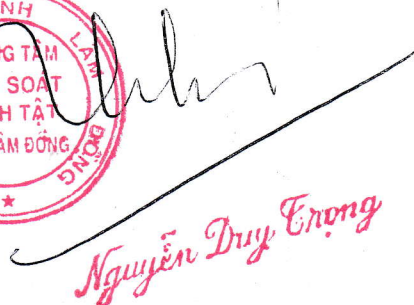 NH LÂM ĐỒNG
NG TÂM
SOÁT
H TẬT
ÂM ĐỒNG
Nguyễn Duy Trọng